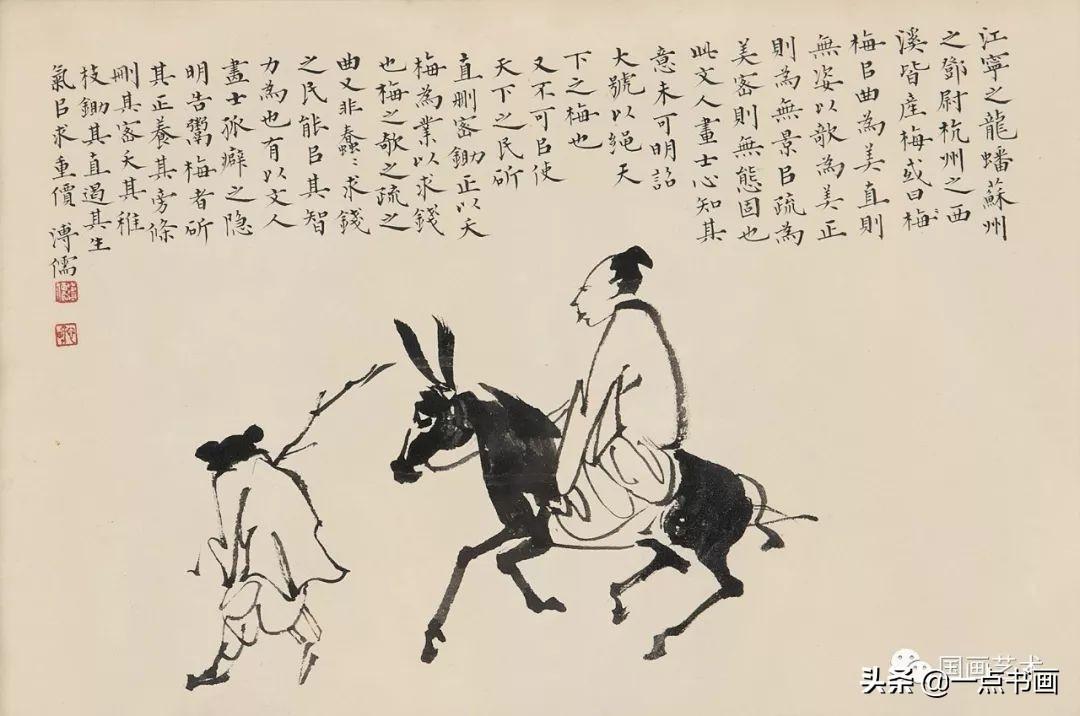 江寧之龍蟠蘇州
之鄧尉杭州之西
溪皆産梅或曰梅
梅㠯曲為美直則
無姿以欹為美正
則為無景㠯疏為
美密則無態固也
此文人畫士心知其
意未可明詔
大號以繩天
下之梅也
又不可㠯使
天下之民斫
直刪密鋤正以夭
梅為業以求錢
也梅之欹之疏之
曲又非蠢〻求錢
之民能㠯其智
力為也有以文人
畫士孤癖之隐
明告鬻梅者斫
其正養其旁條
刪其密夭其稚
枝鋤其直遏其生
氣㠯求重價 溥儒
国画艺术
头条@一点书画